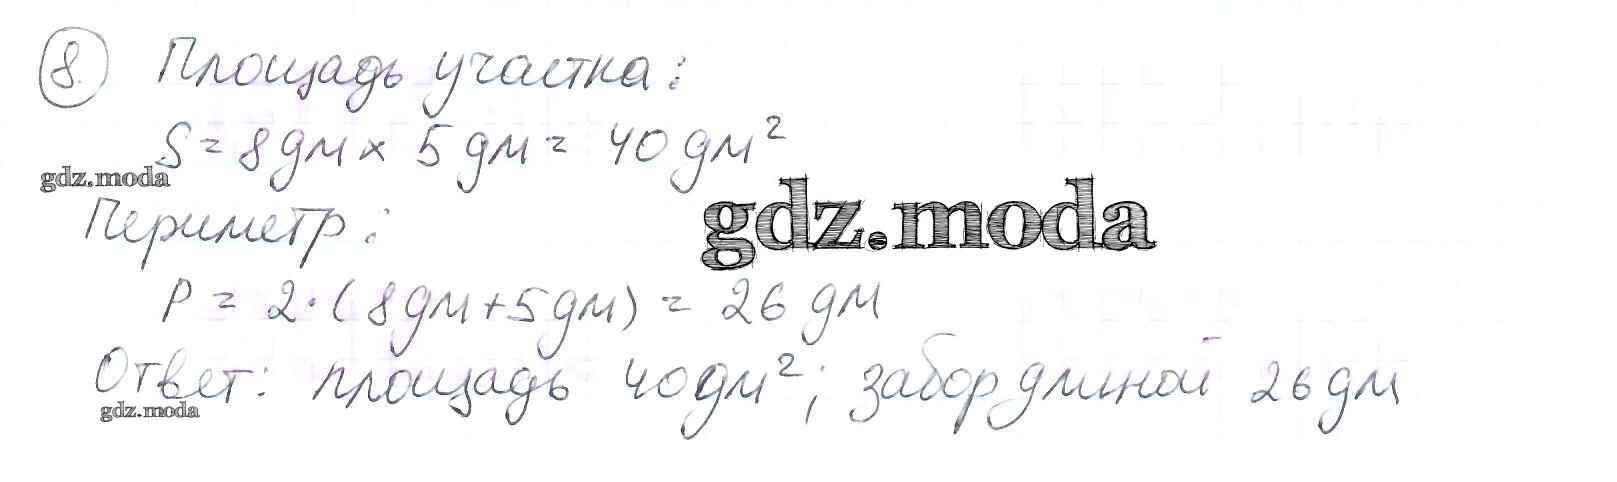 8. Площадь участка:
S = 8 дм × 5 дм = 40 дм²
gdz.moda
gdz.moda
Периметр:
P = 2·(8дм+5дм) = 26 дм
Ответ: площадь 40дм²; забор длиной 26 дм
gdz.moda